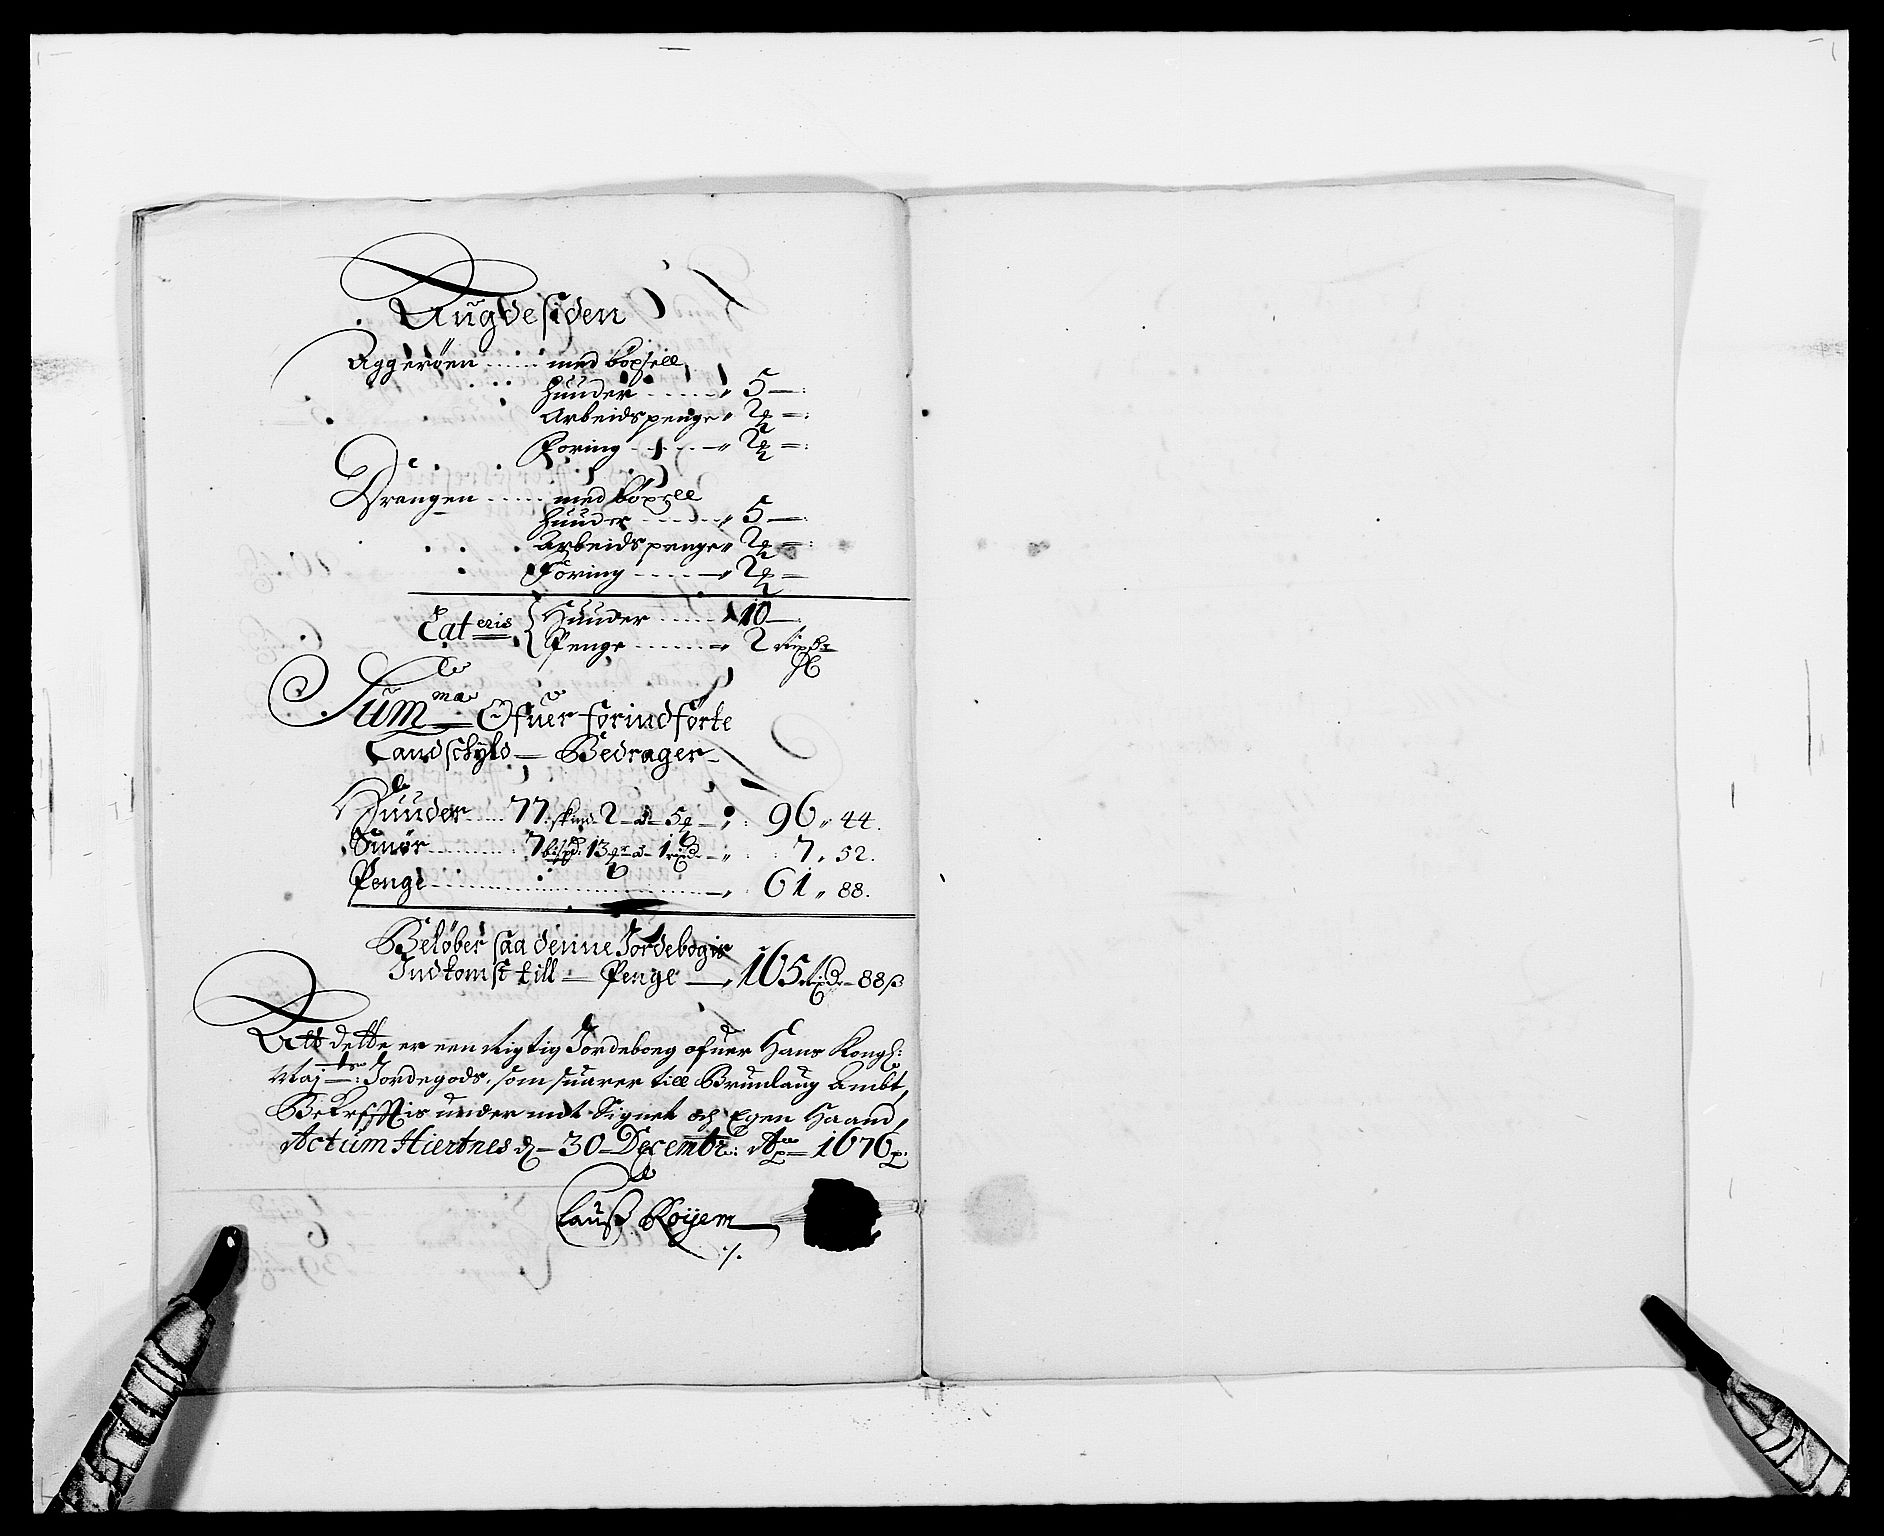 Laugdesiden
Aggerøen ...... med böxsell
Huuder ...... „ 5 —
Arbeidspenge „ 2 ₰ =
Foring ...... „ 2 ₰ =
Vrangen ...... med böxsell
Huuder ...... „ 5 —
Arbeidspenge „ 2 ₰ =
Foring ...... „ 2 ₰ =
Lateris { Huuder ...... 10 —
Penge ...... „ 2 rixdr
Summa Ofuer forindførte
Landschyld — Bedrager
Huuder ..... 77: skind 2 - a - 5 ₰ — „ : 96 „ 44.
Smør ....... 7 bspd: 13 - a - 1 rixd — „ : 7 „ 52.
Penge ............ „ : 61 „ 88.
Beløber saa denne Jordebogis
Indkomst till — Penge — „ 165 rixd - 88 ß
Att dette er een rigtig Jordeboeg ofuer Hans Kongl:
Maj:ts: Jordegods, som suarer till Brunlaug Ambt,
Bekrefftis under mit Signet och Egen Haand,
Actum Hiertnes d - 30 Decembr: Ao 1676
Clauss Röyem